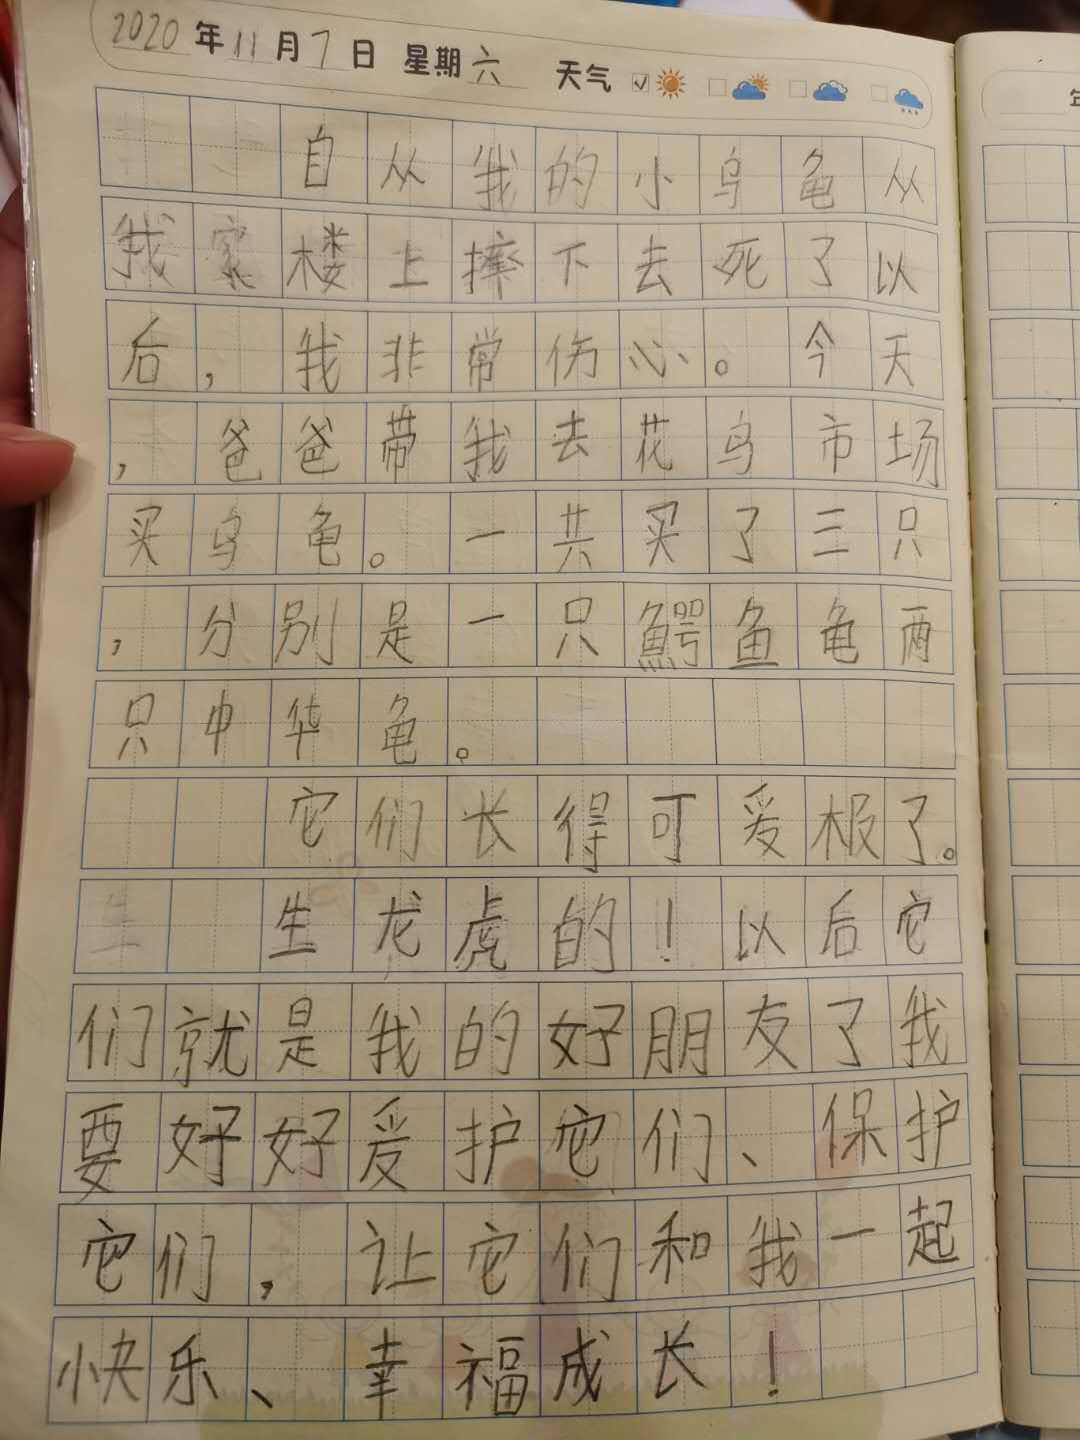 2020年11月7日 星期六 天气
自从我的小乌龟从
我家楼上摔下去死了以
后，我非常伤心。今天
，爸爸带我去花鸟市场
买乌龟。一共买了三只
，分别是一只鳄鱼龟两
只中华龟。
它们长得可爱极了。
生龙虎的！以后它
们就是我的好朋友了我
要好好爱护它们、保护
它们，让它们和我一起
快乐、幸福成长！
年